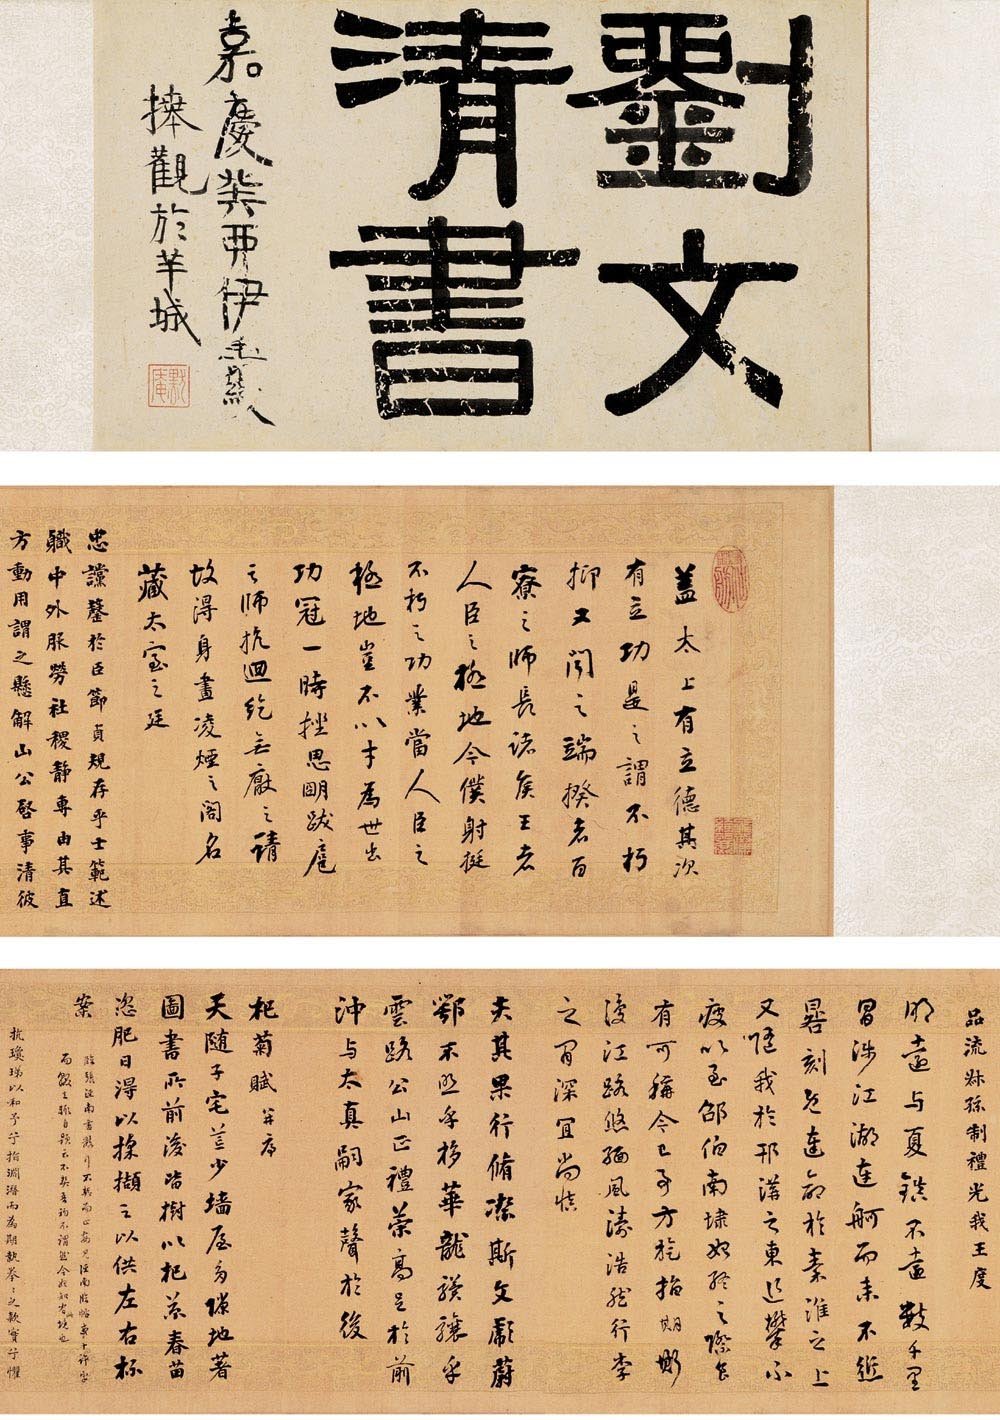 劉文
清書
嘉慶癸酉伊秉綬
捧觀於羊城
蓋太上有立德其次
有立功是之謂不朽
抑又聞之端揆者百
寮之師長諸侯王者
人臣之極地今僕射挺
不朽之功業當人臣之
極地豈不以才為世出
功冠一時挫思明跋扈
之師抗迴紇無厭之請
故得身畫凌煙之閣名
藏太室之廷
忠讜罄於臣節貞規存乎士範述
職中外服勞社稷靜專由其直
方動用謂之懸解山公啓事清彼
品流叔孫制禮光我王度
明遠與夏鎮不遠數千里
冒涉江湖連舸而來不逾
晷刻先達於秦淮之上
又隨我於邗溝之東追攀不
疲以至邵伯南埭始終之際
有可稱今已
江路悠緬風濤浩然行李
之間深宜尚慎
夫其果行脩潔斯文彪蔚
鄂不照乎移華龍驥驤乎
雲路公山正禮策高足於前
沖与太真嗣家聲於後
杞菊賦并序
天隨子宅荒少墻屋多隙地著
圖書所前後皆樹以杞菊春苗
恣肥日得以採擷之以供左右杯
案